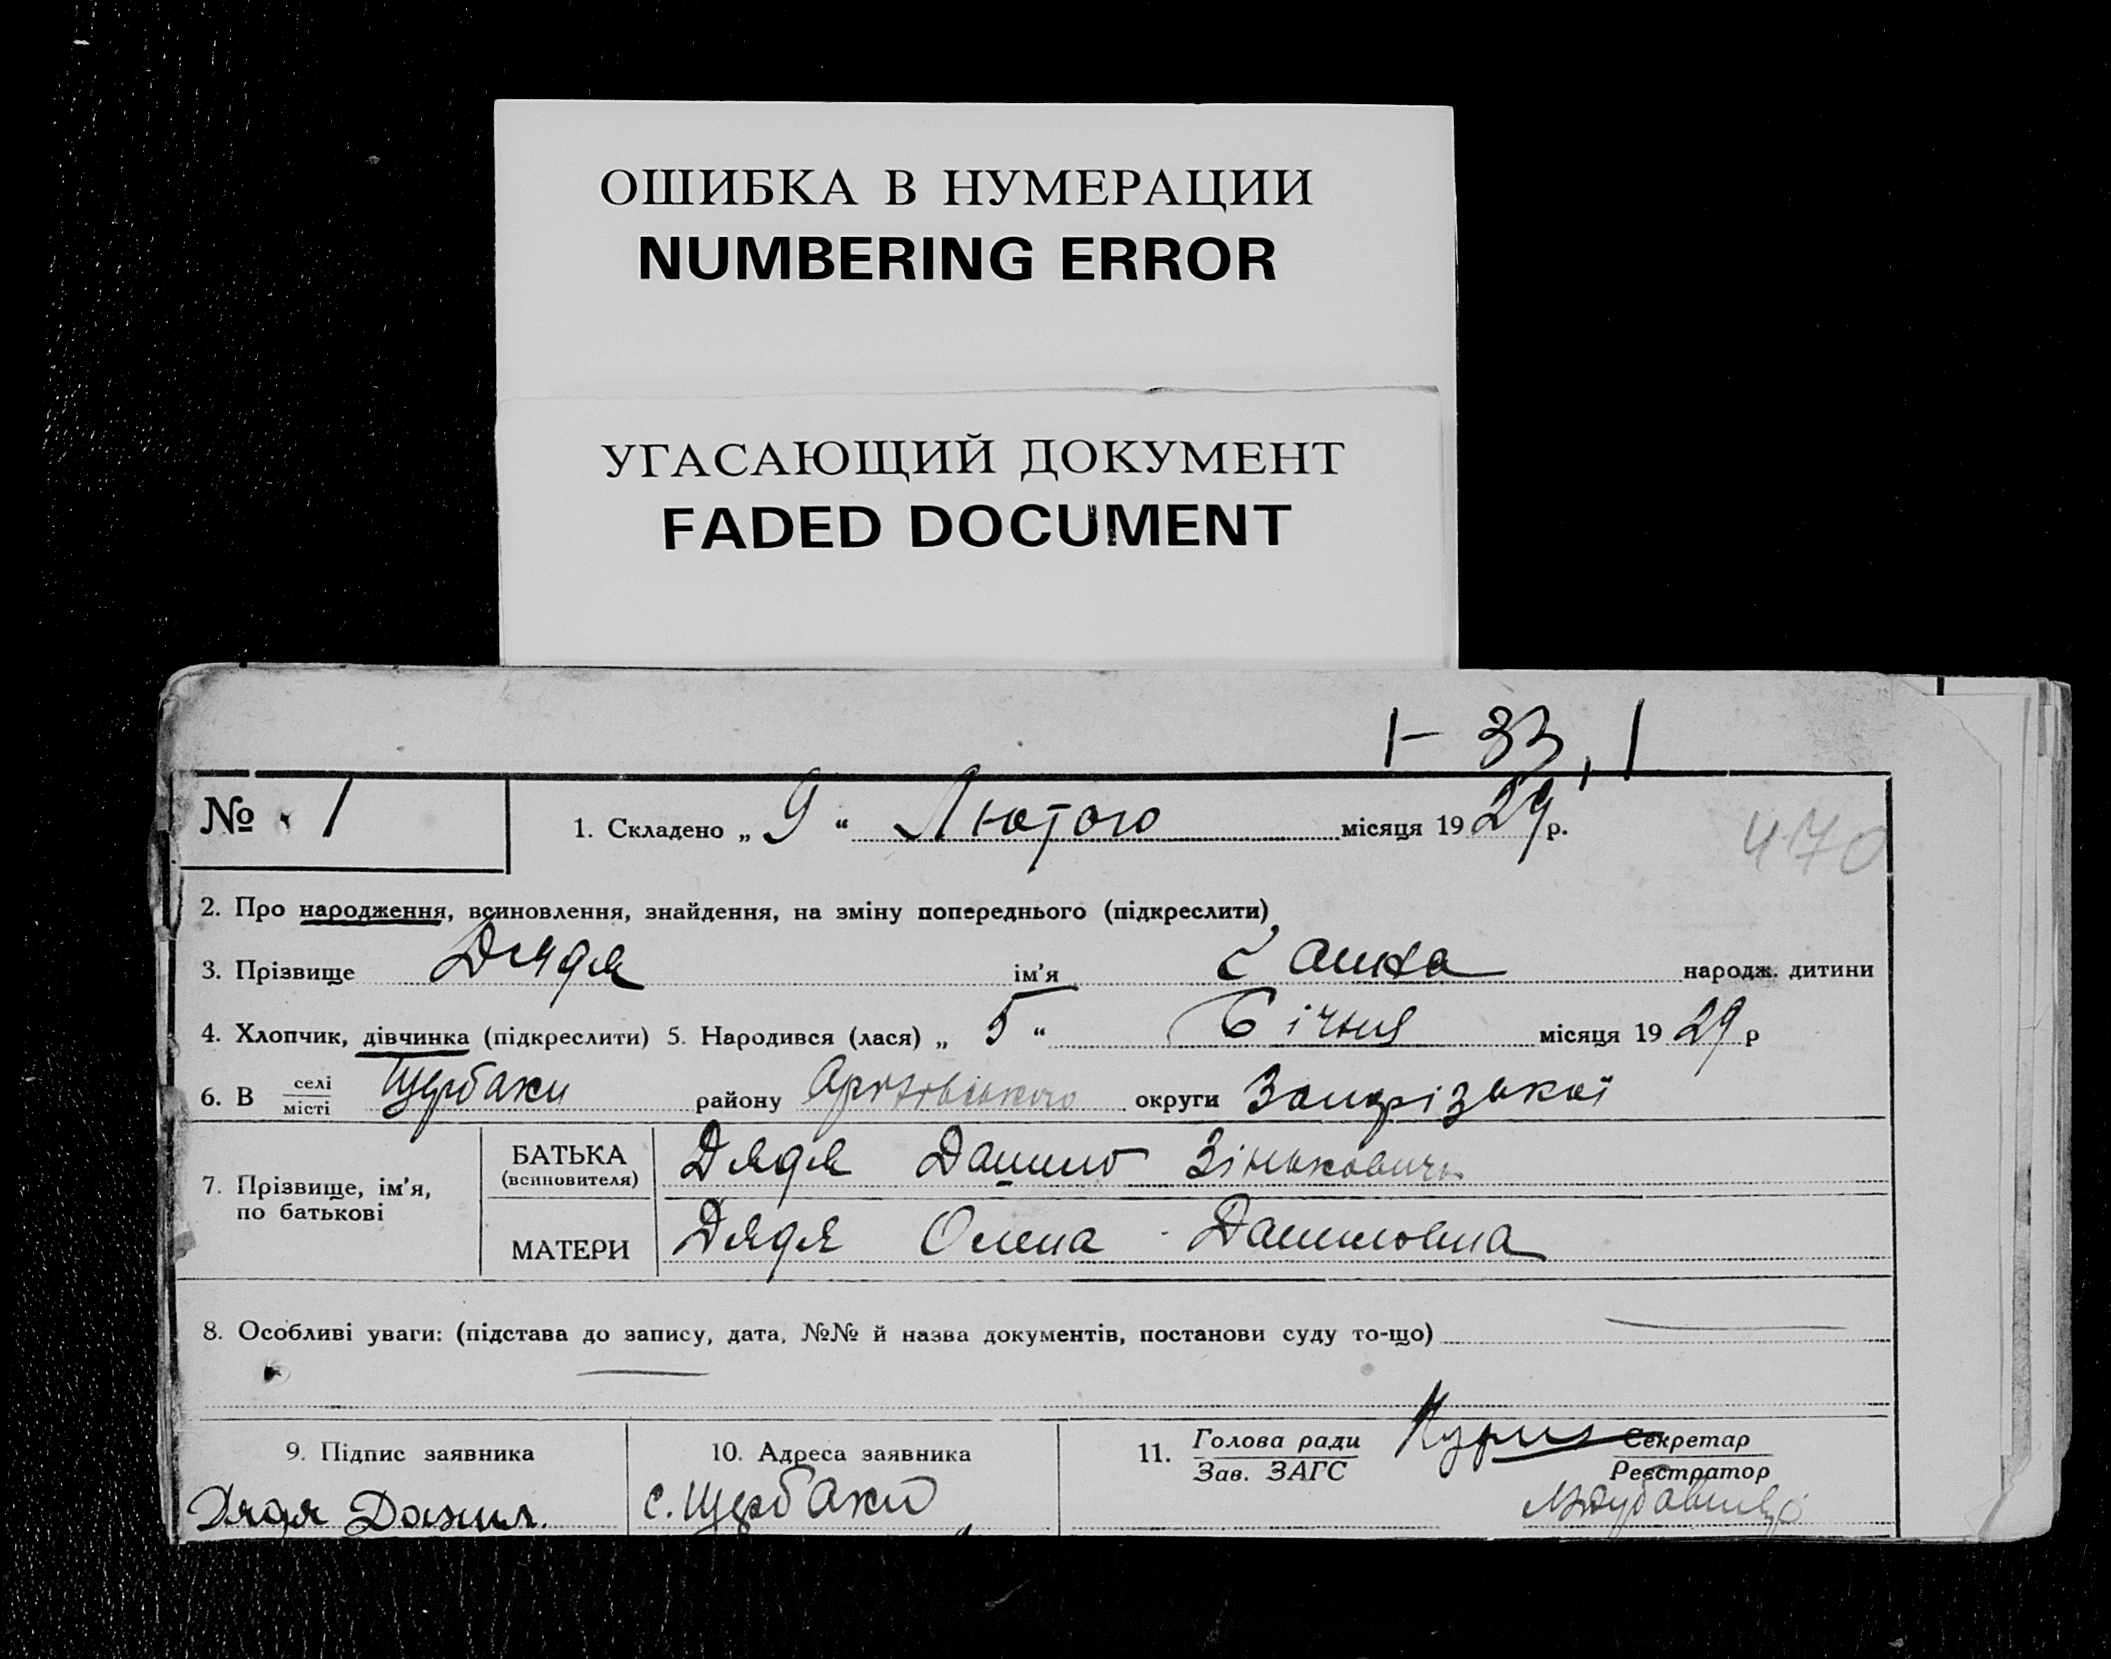 ОШИБКА В НУМЕРАЦИИ
NUMBERING ERROR
УГАСАЮЩИЙ ДОКУМЕНТ
FADED DOCUMENT
1- 33, 1
№ 1
1. Складено „ 9 “ Лютого місяця 1929 р.
470
2. Про народження, всиновлення, знайдення, на зміну попереднього (підкреслити)
3. Прізвище Дядя ім’я народж. дитини
4. Хлопчик, дівчинка (підкреслити) 5. Народився (лася) „ 5 “ Січня місяця 1929 р
6. В селі місті Щербаки району округи Запорізької
7. Прізвище, ім’я, по батькові
БАТЬКА (всиновителя) Дядя Данило Зіньковичь
МАТЕРИ Дядя Олена Даниловна
8. Особливі уваги: (підстава до запису, дата, №№ й назва документів, постанови суду то-що)
9. Підпис заявника
Дядя Данил.
10. Адреса заявника
с. Щербаки
11. Голова ради Зав. ЗАГС
Секретар Реєстратор